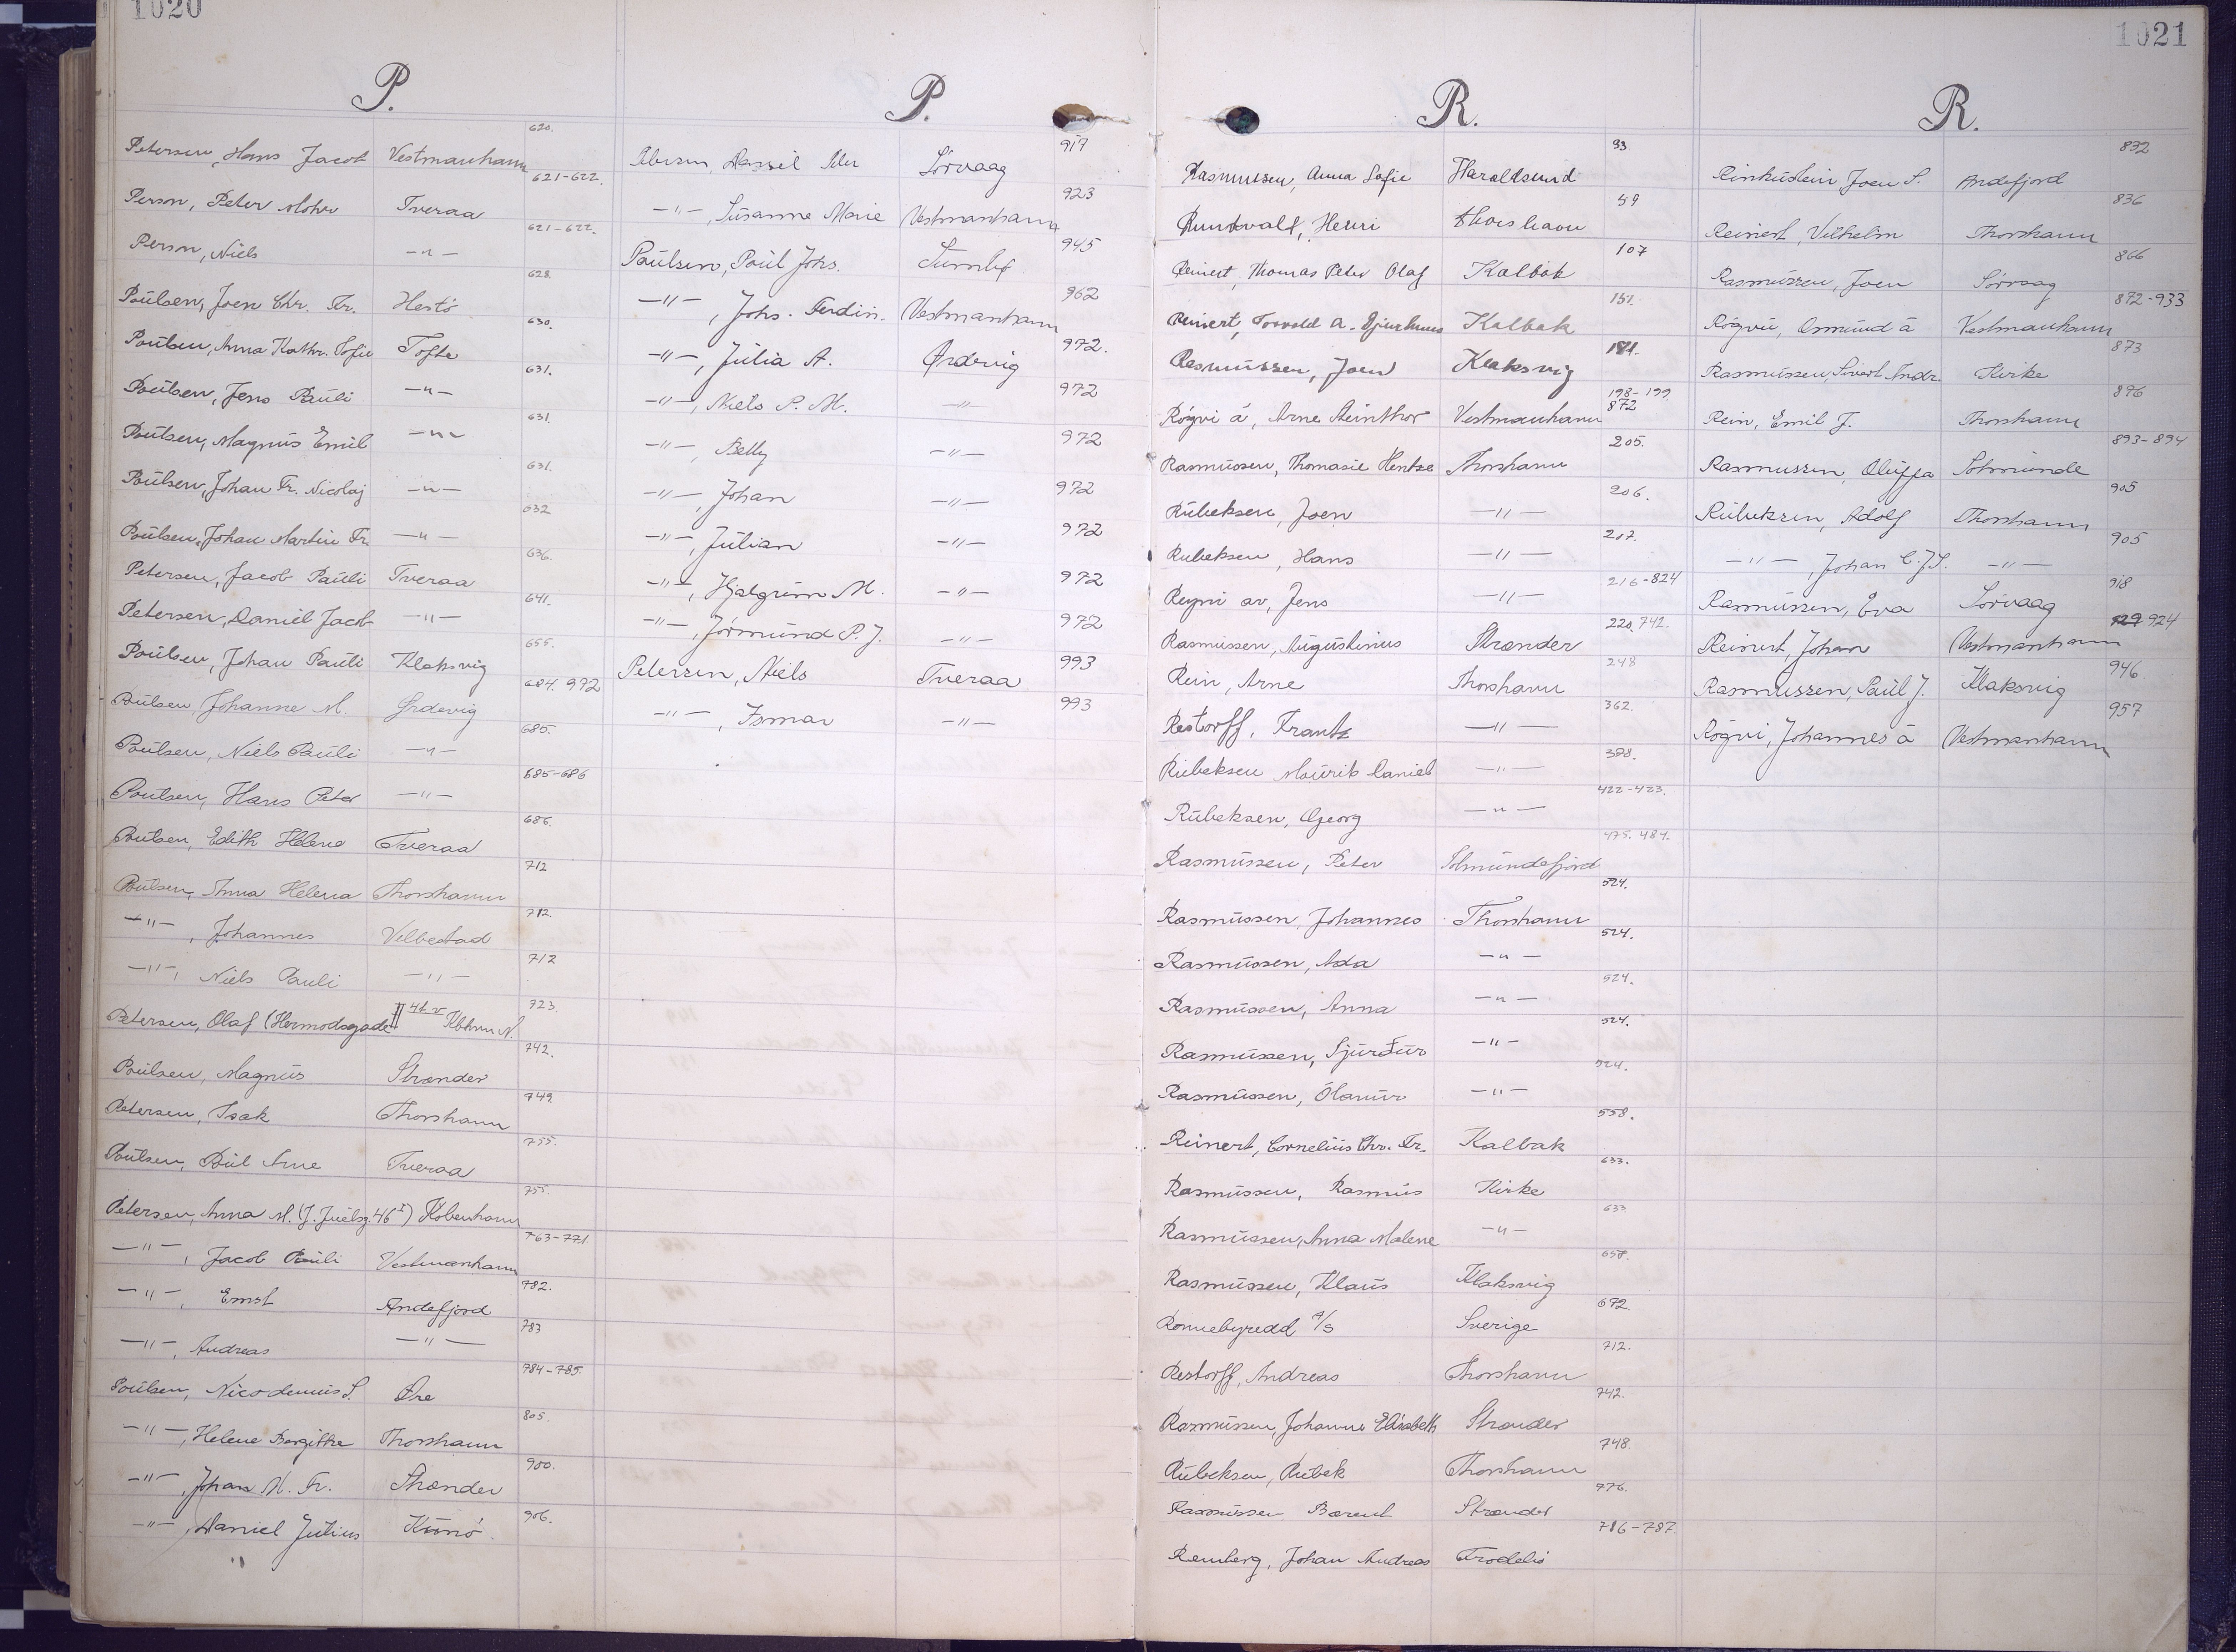 1020
P.
Petersen, Hans Jacob Vestmanhavn 620.
Person, Peter Mohr Tveraa 621-622.
Person, Niels -"- 621-622.
Poülsen, Joen Chr. Fr. Hestö 628.
Poülsen, Anna Kathr. Sofie Tofte 630.
Poülsen, Jens Paüli -"- 631.
Poülsen, Magnüs Emil -"- 631.
Poülsen, Johan Fr. Nicolaj -"- 631.
Poülsen, Johan Martin Fr. -"- 632
Petersen, Jacob Paüli Tveraa 636.
Petersen, Daniel Jacob -"- 641.
Poülsen, Johan Paüli Klaksvig 655.
Poülsen, Johanne M. Ørdevig 684. 972
Poülsen, Niels Paüli -"- 685.
Poülsen, Hans Peter -"- 685-686
Poülsen, Edith Helene Tveraa 686.
Poülsen, Anna Helena Thorshavn 712
-"-, Johannes Velbestad 712.
-"-, Niels Pauli -"- 712
Petersen, Olaf (Hermodsgade Kbhvn N. 723
Poülsen, Magnüs Strænder 742.
Petersen, Isak Thorshavn 749.
Poülsen, Poül Arne Tveraa 755.
Petersen, Anna M. (J. Juelsg. 46 I) Köbenhavn 755.
-"-, Jacob Paüli Vestmanhavn 763-771
-"-, Ernst Andefjord 782.
-"-, Andreas -"- 783
Poülsen, Nicodemüs S. Øre 784-785.
-"-, Helene Bergitte Thorshavn 805.
-"-, Johan M. Fr. Strænder 900.
-"-, Daniel Jülius Künö 906.
P.
Petersen, Peter Sörvaag 917
-"-, Süsanne Marie Vestmanhavn 923
Poülsen, Poül Johs. 945
-"-, Johs. Ferdin. Vestmanhavn 962
-"-, Jülia A. Ørdevig 972.
-"-, Niels P. M. -"- 972
-"-, Betty -"- 972
-"-, Johan -"- 972
-"-, Jülian -"- 972
-"-, Hjalgrim M. -"- 972
-"-, Jörmünd P. J. -"- 972
Petersen, Niels Tveraa 993
-"-, Ismar -"- 993
1021
R.
Rasmussen, Anna Sofie Haraldsund 33
Rundvalt, Henri Thorshavn 59
Reinert, Thomas Peter Olaf Kalbak 107
Reinert, Torvold A. Djurhuus Kalbak 151.
Rasmüssen, Joen Klaksvig 181.
Rógvi á, Arne Steinthor Vestmanhavn 198-199 872
Rasmüssen, Thomasie Hentze Thorshavn 205.
Rübeksen, Joen -"- 206.
Rubeksen, Hans -"- 207.
Reyni av, Jens -"- 216-824
Rasmüssen, Aügüstinus Strænder 220. 742.
Rein, Arne Thorshavn 248
Restorff, Frantz -"- 362.
Rübeksen Maürits Daniel -"- 378.
Rübeksen, Georg -"- 422-423.
Rasmüssen, Peter Solmündefjord 475. 484.
Rasmüssen, Johannes Thorshavn 524.
Rasmüssen, Ada -"- 524.
Rasmüssen, Anna -"- 524.
Rasmüssen, Sjürður -"- 524.
Rasmüssen, Ólavür -"- 524.
Reinert, Cornelius Chr. Fr. Kalbak 558.
Rasmüssen, Rasmüs Kirke 633.
Rasmüssen, Anna Malene -"- 633
Rasmüssen, Klaüs Klaksvig 658.
Ronnebyredd A/S Sverige 692.
Restorff, Andreas Thorshavn 712.
Rasmüssen, Johanne Elisabeth Strænder 742.
Rübeksen, Rübek Thorshavn 748.
Rasmüssen Bærent Strænder 776.
Remberg, Johan Andreas Frodebö 786-787
R.
Joen S. Andefjord 832
Reinert, Vilhelm Thorshavn 836
Rasmüssen, Joen Sörvaag 866
Rógvü, Osmünd á Vestmanhavn 872-933
Rasmüssen, Sivert Andr. Kirke 873
Rein, Emil J. Thorshavn 896
Rasmussen, Olüffa Solmünde 893-894
Rübeksen, Adolf Thorshavn 905
-"-, Johan C. J. S. -"- 905
Rasmüssen, Eva Sörvaag 918
Reinert, Johan Vestmanhavn 924
Rasmüssen, Paül J. Klaksvig 946
Rógvi, Johannes á Vestmanhavn 957